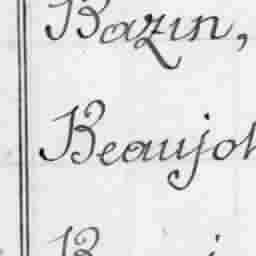 Bazin,
Beaujol